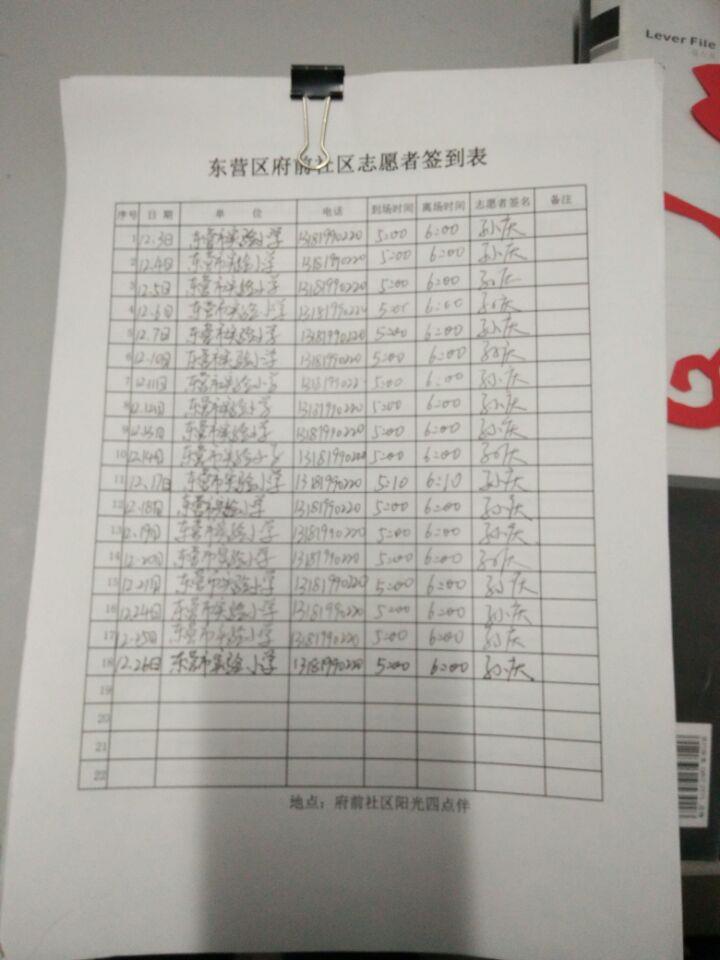 Lever File
东营区府前社区志愿者签到表
序号 日期 单位 电话 到场时间 离场时间 志愿者签名 备注
1 12.3日 东营市实验小学 13181990220 5:00 6:00 孙庆
2 12.4日 东营市实验小学 13181990220 5:00 6:00 孙庆
3 12.5日 东营市实验小学 13181990220 5:00 6:00 孙庆
4 12.6日 东营市实验小学 13181990220 5:00 6:00 孙庆
5 12.7日 东营市实验小学 13181990220 5:00 6:00 孙庆
6 12.10日 东营市实验小学 13181990220 5:00 6:00 孙庆
7 12.11日 东营市实验小学 13181990220 5:00 6:00 孙庆
8 12.12日 东营市实验小学 13181990220 5:00 6:00 孙庆
9 12.13日 东营市实验小学 13181990220 5:00 6:00 孙庆
10 12.14日 东营市实验小学 13181990220 5:00 6:00 孙庆
11 12.17日 东营市实验小学 13181990220 5:10 6:10 孙庆
12 12.18日 东营市实验小学 13181990220 5:00 6:00 孙庆
13 12.19日 东营市实验小学 13181990220 5:00 6:00 孙庆
14 12.20日 东营市实验小学 13181990220 5:00 6:00 孙庆
15 12.21日 东营市实验小学 13181990220 5:00 6:00 孙庆
16 12.24日 东营市实验小学 13181990220 5:00 6:00 孙庆
17 12.25日 东营市实验小学 13181990220 5:00 6:00 孙庆
18 12.26日 东营市实验小学 13181990220 5:00 6:00 孙庆
19
20
21
22
地点：府前社区阳光四点伴